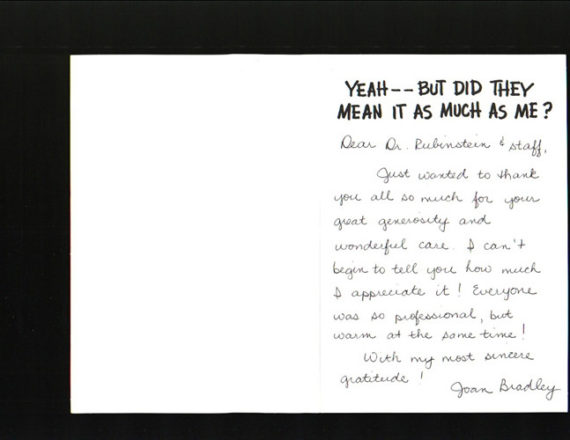 YEAH -- BUT DID THEY
MEAN IT AS MUCH AS ME?
Dear Dr. Rubinstein & staff,
Just wanted to thank
you all so much for your
great generosity and
wonderful care. I can't
begin to tell you how much
I appreciate it! Everyone
was so professional, but
warm at the same time!
With my most sincere
gratitude!
Joan Bradley